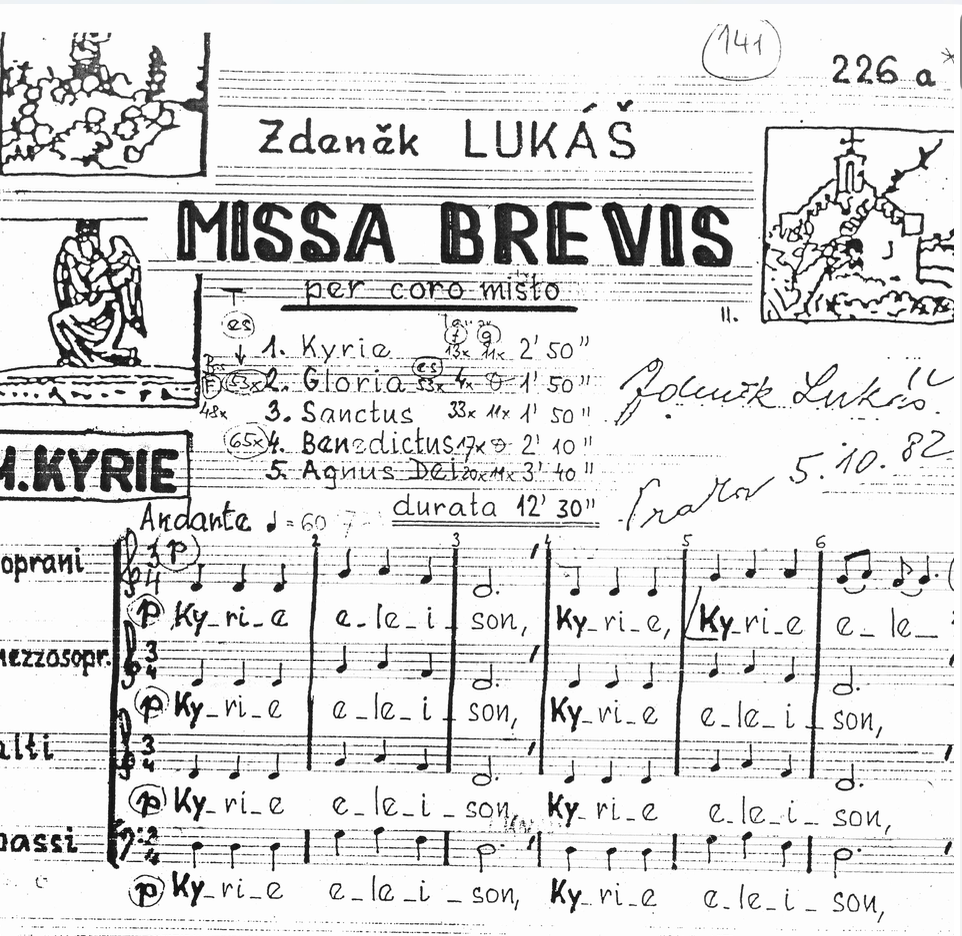 141
226 a *
Zdeněk LUKÁŠ
MISSA BREVIS
per coro misto
II.
es
1. Kyrie 13x 11x 2' 50"
F 53x 2. Gloria es 53x 4x 1' 50"
48x 3. Sanctus 33x 11x 1' 50"
65x 4. Benedictus 17x 2' 10"
5. Agnus Dei 20x 11x 3' 40"
durata 12' 30"
Zdeněk Lukáš
5. 10. 82
KYRIE
Andante ♩ = 60
2 3 4 5 6
oprani p 3 4
p Ky_ ri_ e e_ le_ i_ son, Ky_ ri_ e, Ky_ ri_ e e_ le_
mezzosopr. 3 4
p Ky_ ri_ e e_ le_ i_ son, Ky_ ri_ e e_ le_ i_ son,
alti 3 4
p Ky_ ri_ e e_ le_ i_ son, Ky_ ri_ e e_ le_ i_ son,
bassi 4
p Ky_ ri_ e e_ le_ i_ son, Ky_ ri_ e e_ le_ i_ son,